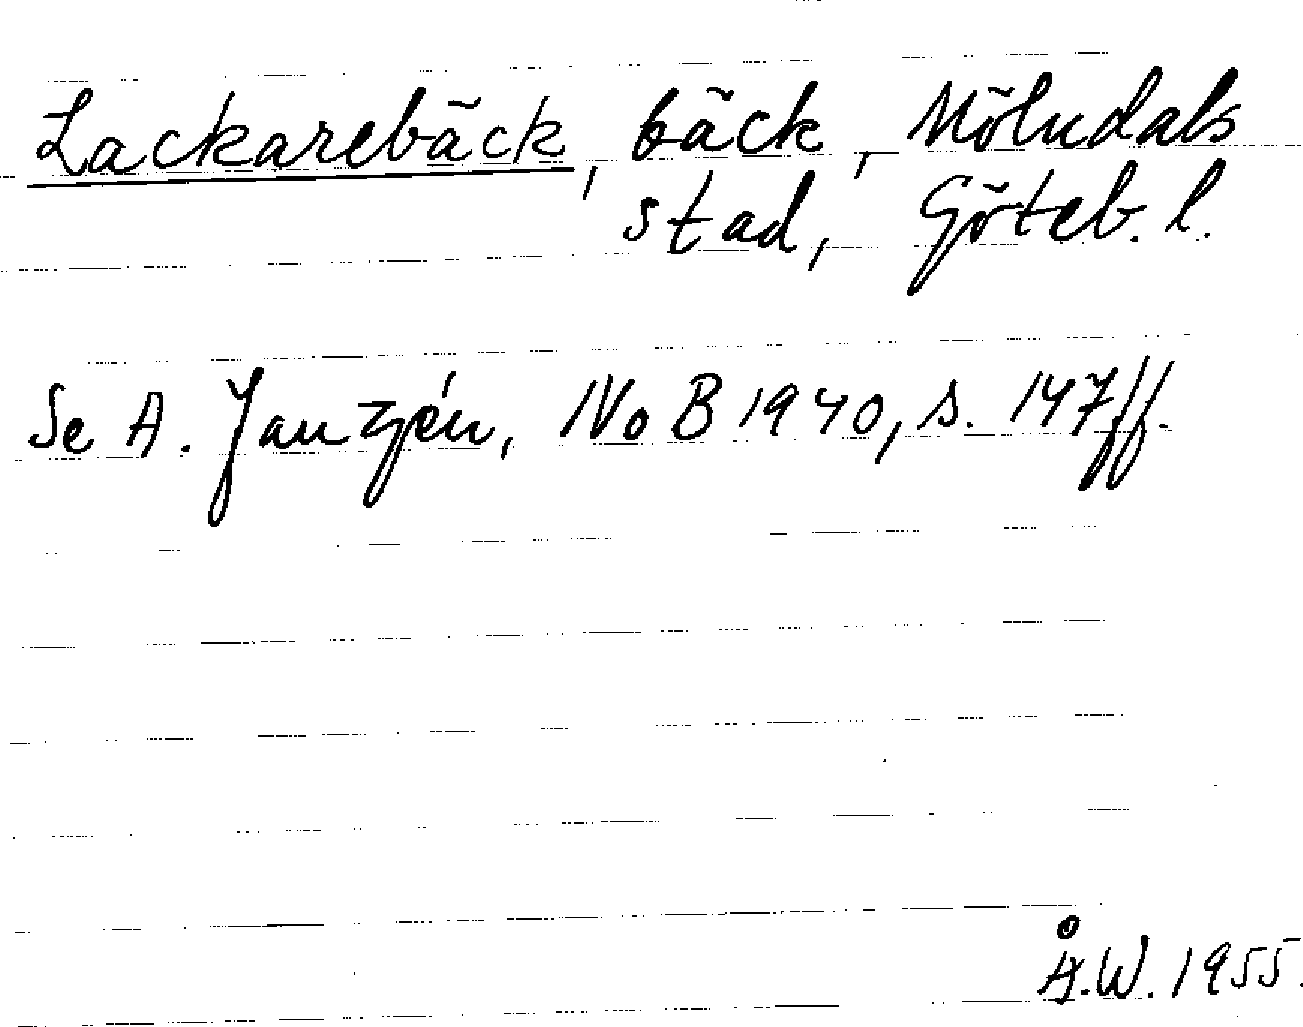 Lackarebäck, bäck, Mölndals
stad, Göteb. l.
Se A. Janzén, NoB 1940, s. 147ff.
Å.W. 1955.